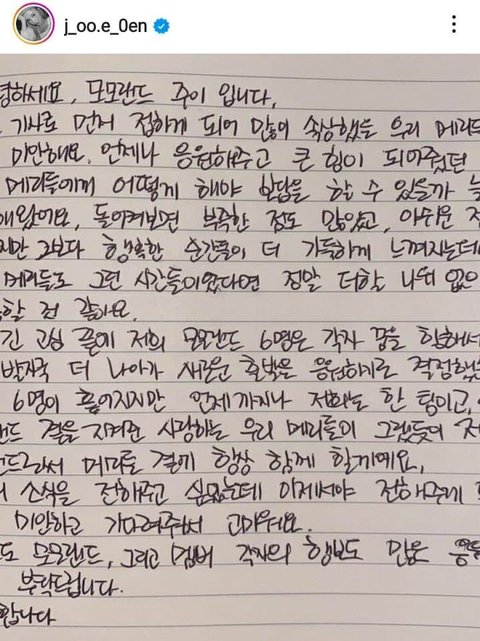 j_oo.e_0en
녕하세요, 모모랜드 주이 입니다.
기사로 먼저 접하게 되어 많이 속상했을 우리 메리들
미안해요. 언제나 응원해주고 큰 힘이 되어줬던
메리들에게 어떻게 해야 보답을 할 수 있을까 늘
해왔어요, 돌이켜보면 부족한 점도 많았고, 아쉬운 점
지만 그보다 행복한 순간들이 더 가득하게 느껴지는데
메리들도 그런 시간들이었다면 정말 더할 나위 없이
할 것 같아요.
긴 고심 끝에 저희 모모랜드 6명은 각자 꿈을 향해서
발자국 더 나아가 새로운 출발을 응원하기로 결정했
6명이 흩어지지만 언제까지나 저희는 한 팀이고,
랜드 곁을 지켜준 사랑하는 우리 메리들의 그랬듯이 저
랜드로서 메리들 곁에 항상 함께 할게요.
소식을 전해주고 싶었는데 이제서야 전해주게
미안하고 기다려줘서 고마워요.
도 모모랜드, 그리고 멤버 각자의 행보도 많은 응원
부탁드립니다.
합니다